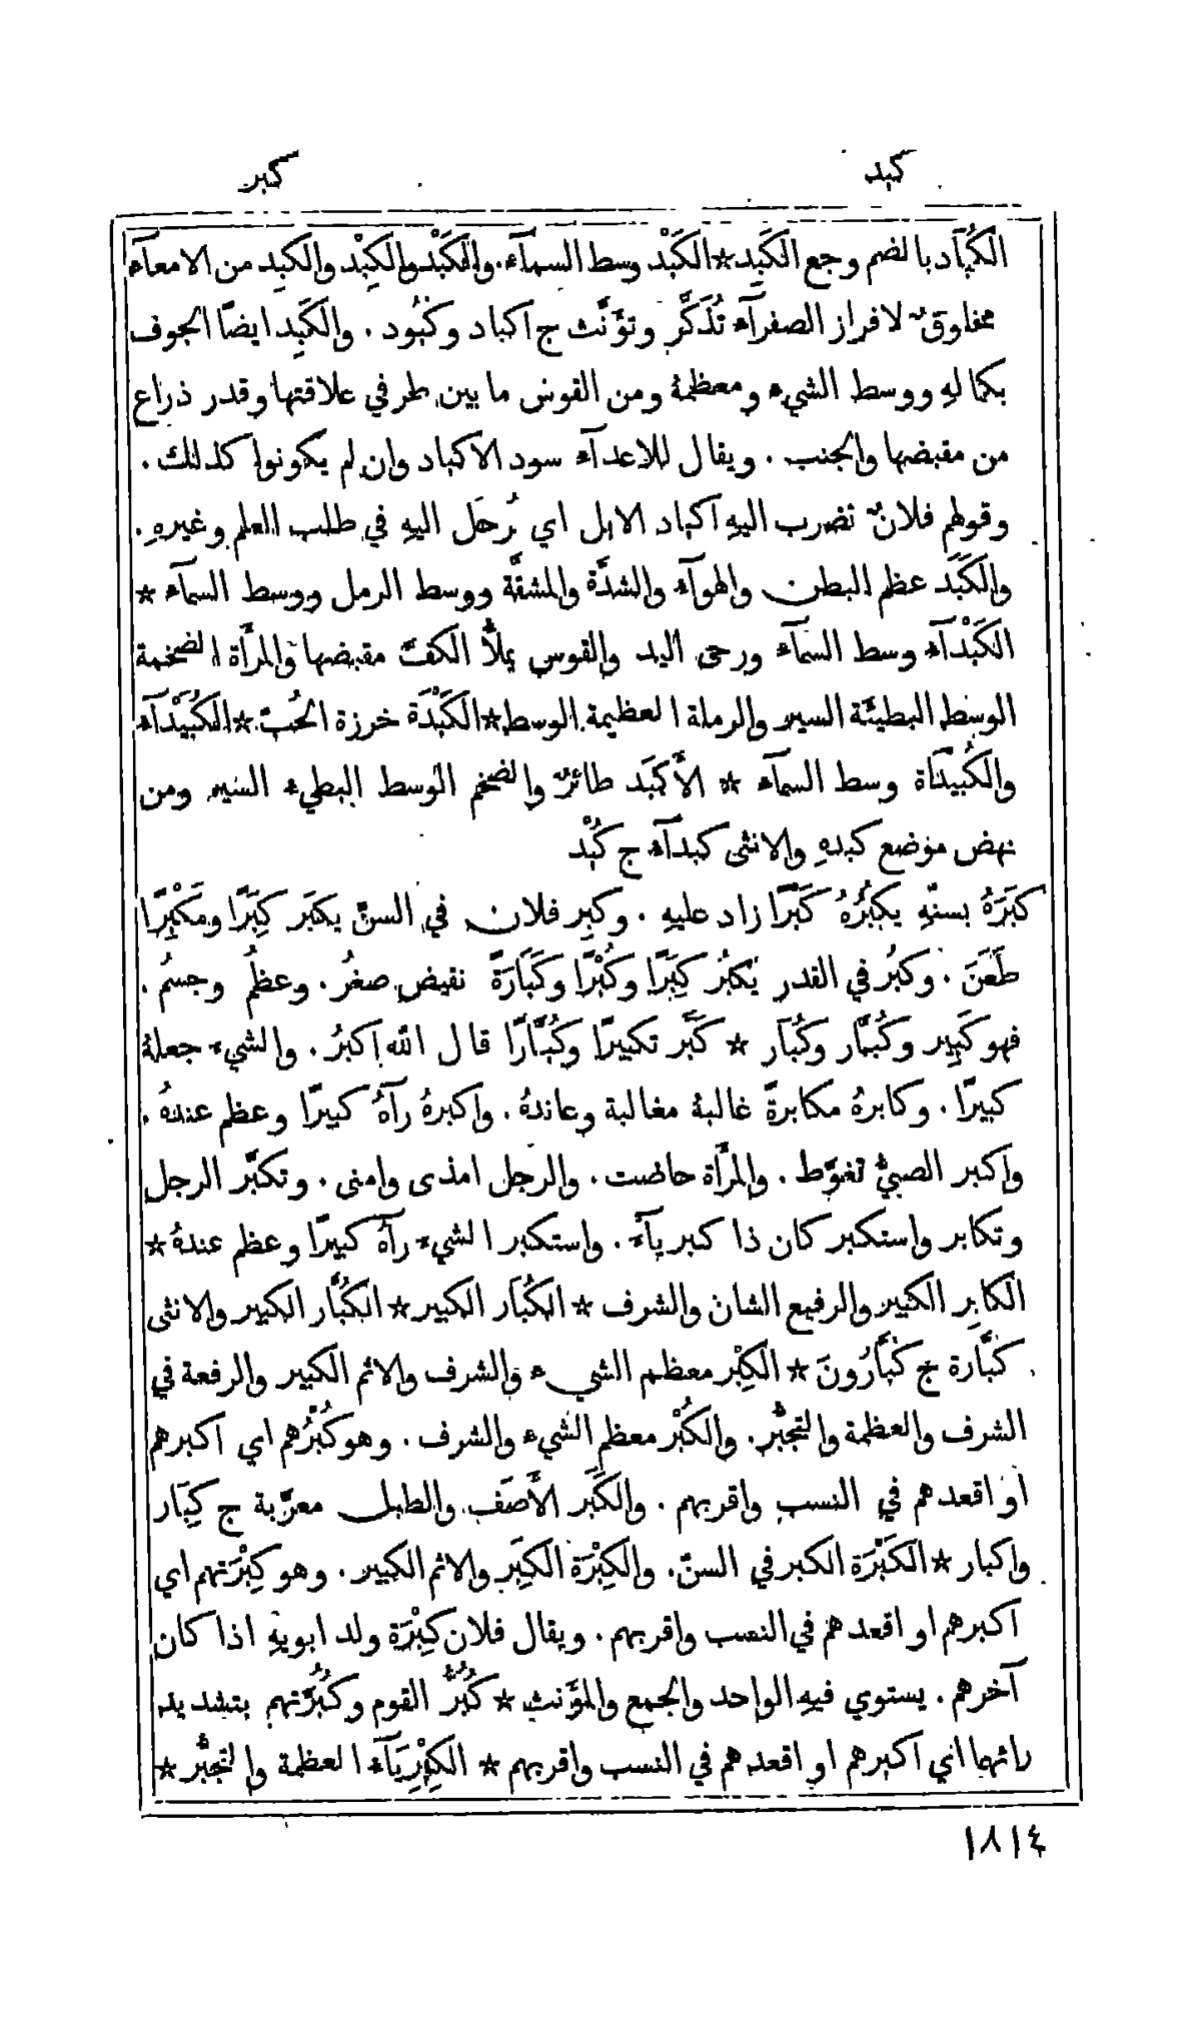 كبد كبر
الكُبَآد بالضم وجع الكَبِد * الكَبْد وسط السمآء . والكَبْد والكِبْد والكَبِد من الامعآء
مخلوق لافراز الصفرآء تُذَكَّر وتؤَنَّث ج اكباد وكُبُود . والكَبِد ايضًا الجوف
بكمالهِ ووسط الشيء ومعظمهُ ومن القوس ما بين طرفي علاقتها وقدر ذراع
من مقبضها والجنب . ويقال للاعدآء سود الاكباد وان لم يكونوا كذلك .
وقولهم فلانٌ تضرب اليهِ اكباد الابل اي يُرحَل اليهِ في طلب العلم وغيرهِ .
والكَبَد عظم البطن والهوآء والشدَّة والمشقَّة ووسط الرمل ووسط السمآء *
الكَبْدآء وسط السمآء ورحى اليد والقوس يملأُ الكفَّ مقبضها والمرأَة الضخمة
الوسط البطيئَة السير والرملة العظيمة الوسط * الكَبْدَة خرزة الحُبّ * الكُبَيْدآء
والكُبَيْدَاة وسط السمآء * الأَكبَد طائرٌ والضخم الوسط البطيء السير ومن
نهض موضع كبدهِ والانثى كبدآء ج كُبْد
كبَرَهُ بسنّهِ يكبُرُهُ كَبْرًا زاد عليهِ . وكبِر فلان في السنّ يكبَر كِبَرًا ومَكْبِرًا
طَعَنَ . وكبُر في القدر يَكبُر كِبَرًا وكُبْرًا وكَبَارَةً نقيض صغُر . وعظُم وجسُم .
فهو كَبِير وكُبَّار وكُبَار * كَبَّر تكبيرًا وكُبَّارًا قال الله اكبرُ . والشيءَ جعلهُ
كبيرًا . وكابرهُ مكابرةً غالبهُ مغالبة وعاندهُ . واكبرهُ رآهُ كبيرًا وعظم عندهُ .
واكبر الصبيُّ تغوَّط . والمرأَة حاضت . والرجل امذى وامنى . وتكبَّر الرجل
وتكابر واستكبر كان ذا كبريآء . واستكبر الشيءَ رآهُ كبيرًا وعظم عندهُ *
الكابِر الكبير والرفيع الشان والشرف * الكُبَار الكبير * الكُبَّار الكبير والانثى
كُبَّارة ج كُبَّارُونَ * الكِبْر معظم الشيء والشرف والاثم الكبير والرفعة في
الشرف والعظمة والتجبُّر . والكُبْر معظم الشيء والشرف . وهو كُبْرُهم اي اكبرهم
او اقعدهم في النسب واقربهم . والكَبَر الأَصَف والطبل معرَّبة ج كِبَار
واكبار * الكَبْرَة الكبر في السنّ . والكِبْرَة الكِبَر والاثم الكبير . وهو كِبْرَتهم اي
اكبرهم او اقعدهم في النسب واقربهم . ويقال فلان كِبْرَة ولد ابويهِ اذا كان
آخرهم . يستوي فيهِ الواحد والجمع والمؤَنث * كُبُرُّ القوم وكُبُرَّتهم بتشديد
رائها اي اكبرهم او اقعدهم في النسب واقربهم * الكِبْرِيَآء العظمة والتجبُّر *
١٨١٤